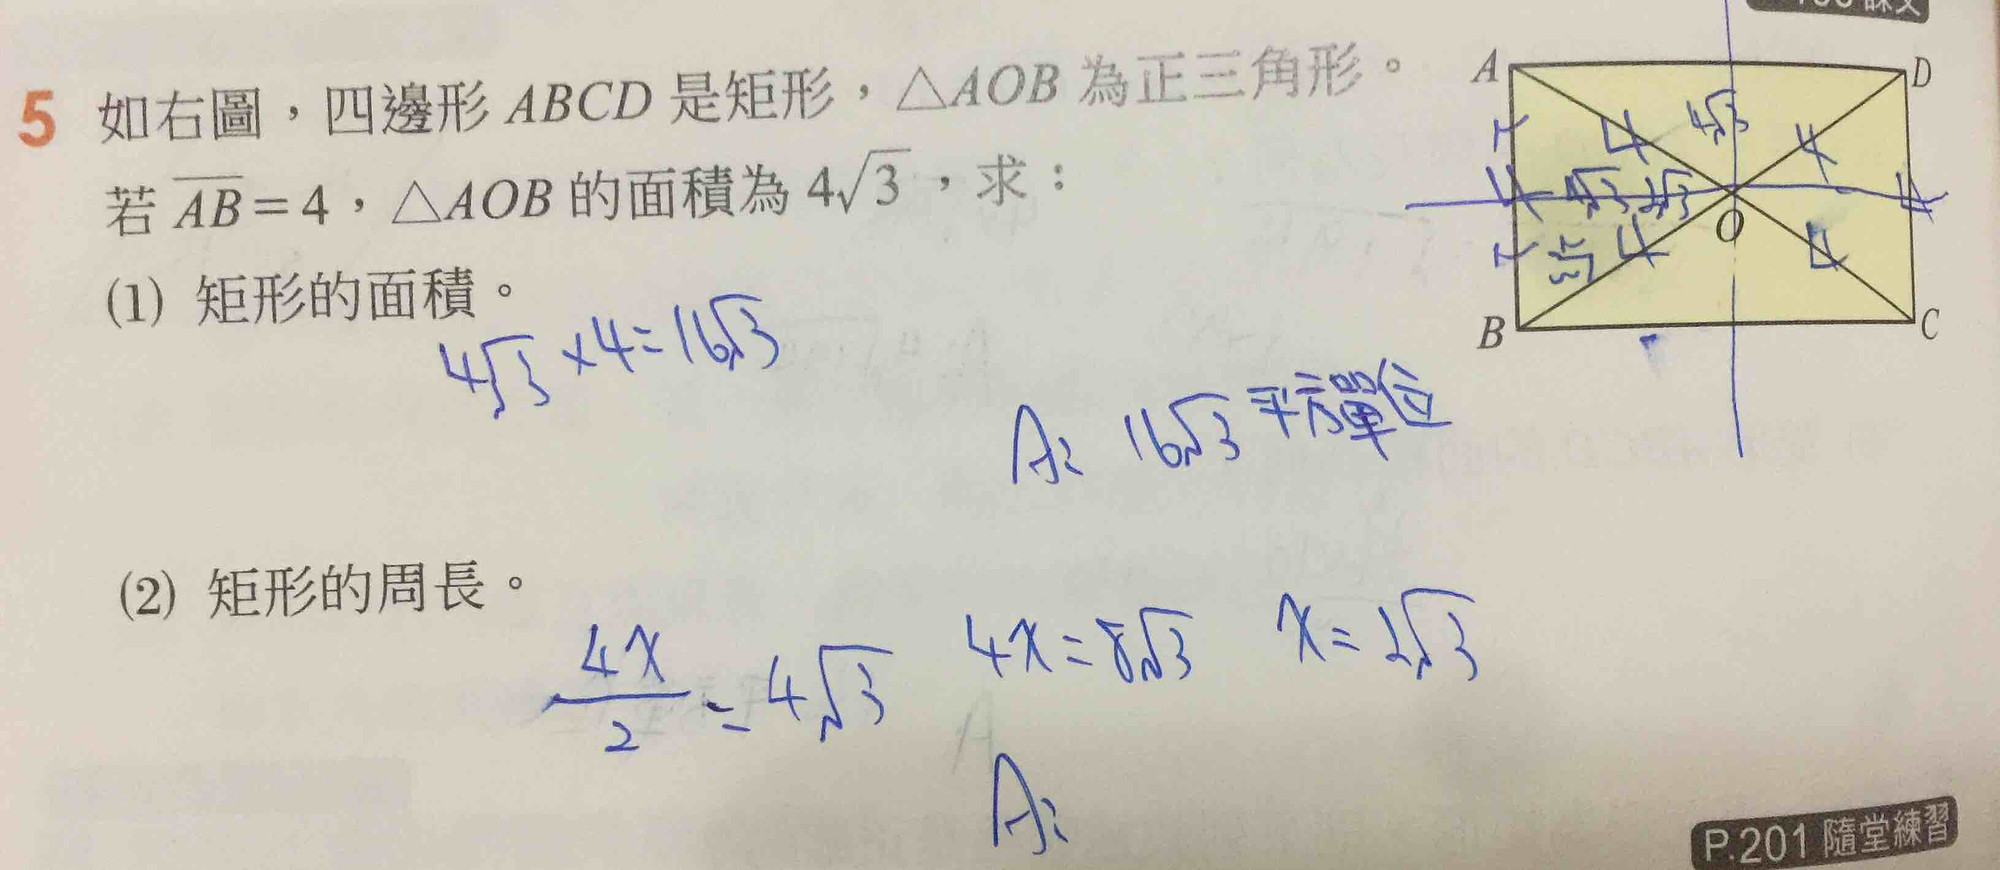 5 如右圖，四邊形 ABCD 是矩形，△AOB 為正三角形。
若 AB=4，△AOB 的面積為 4√3，求：
(1) 矩形的面積。
4√3×4=16√3
A: 16√3 平方單位
(2) 矩形的周長。
4x/2=4√3 4x=8√3 x=2√3
A:
A D
4 4√3 4
4 4√3 2√3 4
O
4 4
B C
P.201 隨堂練習